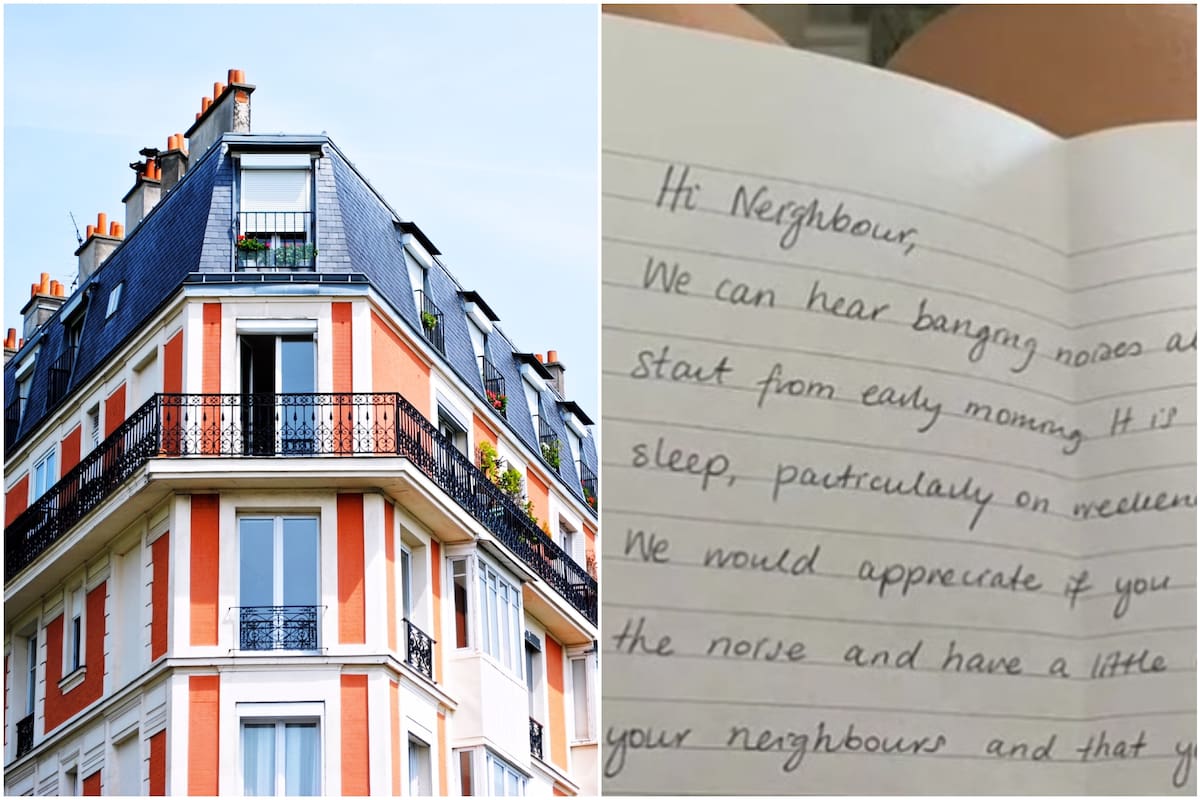 Hi Neighbour,
We can hear banging noises
start from early morning It is
sleep, particularly on
We would appreciate if you
the noise and have a little
your neighbours and that